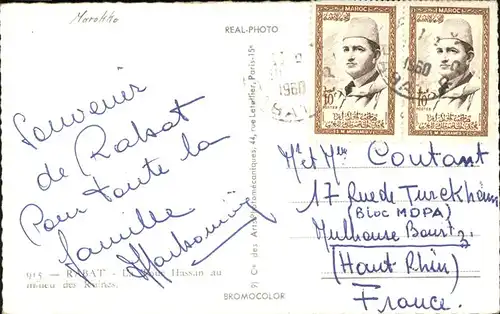 Marokko
REAL-PHOTO
MAROC
MAROC
1960
1960
RABAT
10
10
S.M. MOHAMMED V
Souvenir
de Rabat
Pour toute la
famille
915 — RABAT - La Tour Hassan au
milieu des Ruines.
Cie des Arts Photomécaniques, 44, rue Letellier, Paris-15e
BROMOCOLOR
Mr et Mme Coutant
17 Rue de Turckheim
(Bloc MDPA)
Mulhouse Bourtz
(Haut Rhin)
France.